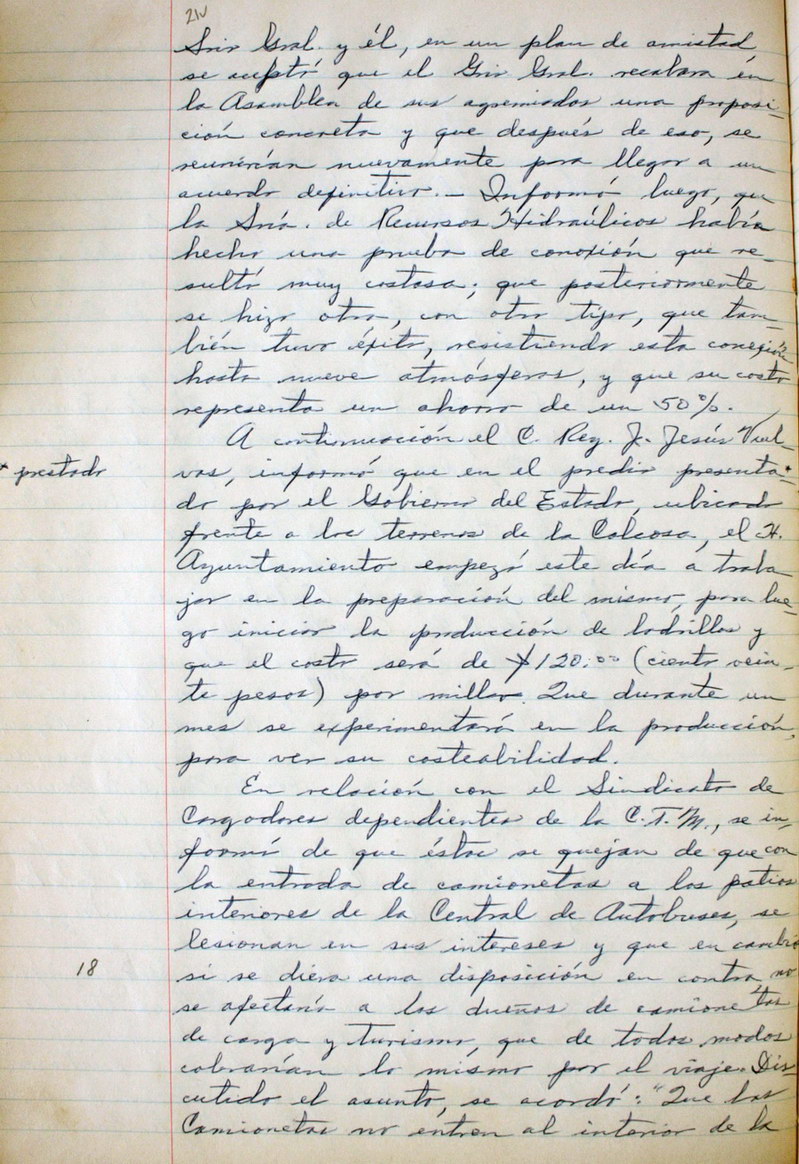 21v
Srio Gral. y él, en un plan de amistad
se aceptó que el Srio Gral. recabara en
la Asamblea de sus agremiados una proposi-
ción concreta y que después de eso, se
reunirían nuevamente para llegar a un
acuerdo definitivo.— Informó luego, que
la Sría. de Recursos Hidraúlicos había
hecho una prueba de conexión que re-
sultó muy costosa; que posteriormente
se hizo otra, con otro tipo, que tam-
bién tuvo éxito, resistiendo esta conexión
hasta nueve atmósferas, y que su costo
representa un ahorro de un 50%.
A continuación el C. Reg. J. Jesús
vas, informó que en el predio presenta*
* prestado
do por el Gobierno del Estado, ubicado
frente a los terrenos de la Calcosa, el H.
Ayuntamiento empezó este día a traba
jar en la preparación del mismo, para lue-
go iniciar la producción de ladrillos y
que el costo será de $120.00 (ciento vein-
te pesos) por millar. Que durante un
mes se experimentará en la producción,
para ver su costeabilidad.
En relación con el Sindicato de
Cargadores dependientes de la C.T.M., se in-
formó de que éstos se quejan de que con
la entrada de camionetas a los patios
interiores de la Central de Autobuses, se
lesionan en sus intereses y que en cambio
18
si se diera una disposición en contra no
se afectaría a los dueños de camionetas
de carga y turismo, que de todos modos
cobrarían lo mismo por el viaje. Dis-
cutido el asunto, se acordó: "Que las
Camionetas no entren al interior de la